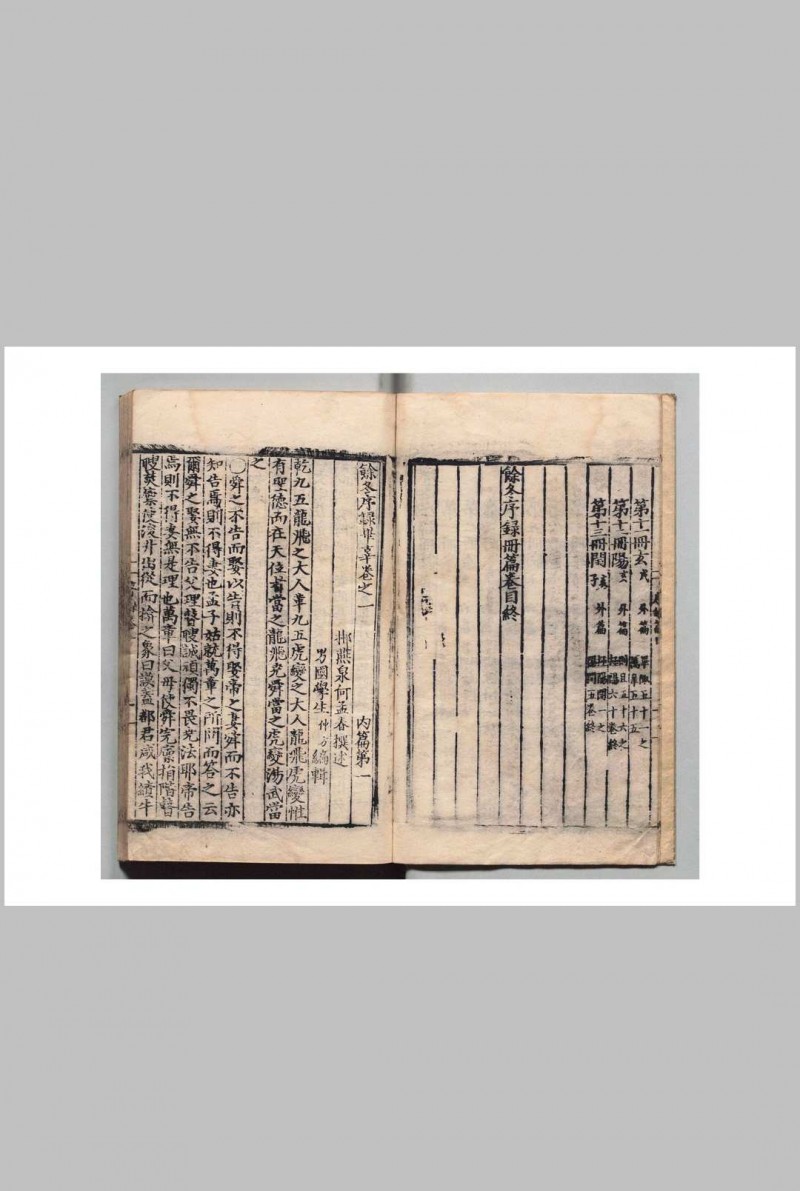 第十一冊玄 亥 外篇
第十二冊陽 玄 外篇
第十三冊閏 亥子 外篇
餘冬序録冊篇卷目終
餘冬序録畢辜卷之一
内篇第一
郴燕泉何孟春撰述
男國學生仲方編輯
乾九五龍飛之大人革九五虎變之大人龍飛虎變惟
有聖德而在天位者當之龍飛堯舜當之虎變湯武當
之
○舜之不告而娶以告則不得娶帝之妻舜而不告亦
知告焉則不得妻也孟子姑就萬章之所問而答之云
爾舜之娶無不告父理瞽瞍誠頑獨不畏堯法耶帝告
焉則不得妻無是理也萬章曰父母使舜完廩捐階瞽
瞍焚廩使浚井出從而揜之象曰謨蓋都君咸我績牛